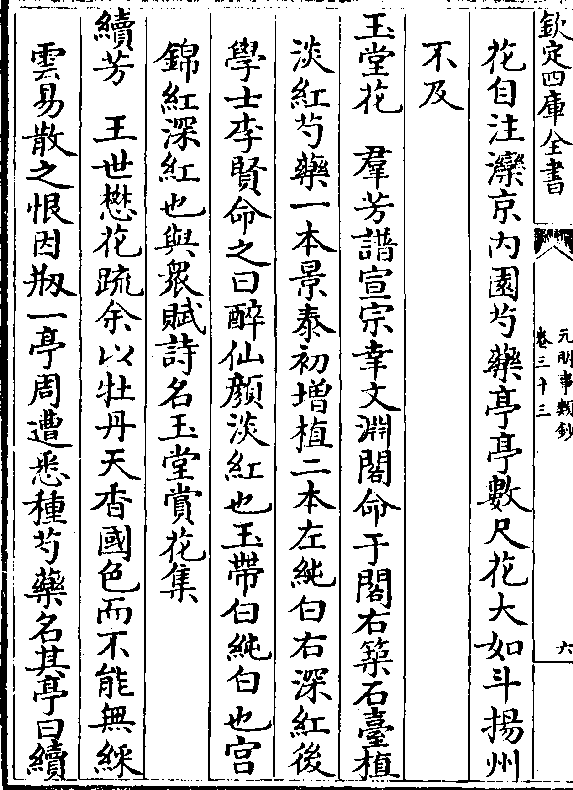 欽定四庫全書
元明事類鈔
卷三十三
六
花自注灤京内園芍藥亭亭數尺花大如斗揚州
不及
玉堂花　羣芳譜宣宗幸文淵閣命于閣右築石臺植
淡紅芍藥一本景泰初增植二本左純白右深紅後
學士李賢命之曰醉仙顔淡紅也玉帶白純白也宫
錦紅深紅也與衆賦詩名玉堂賞花集
續芳　王世懋花疏余以牡丹天香國色而不能無綵
雲易散之恨因剏一亭周遭悉種芍藥名其亭曰續